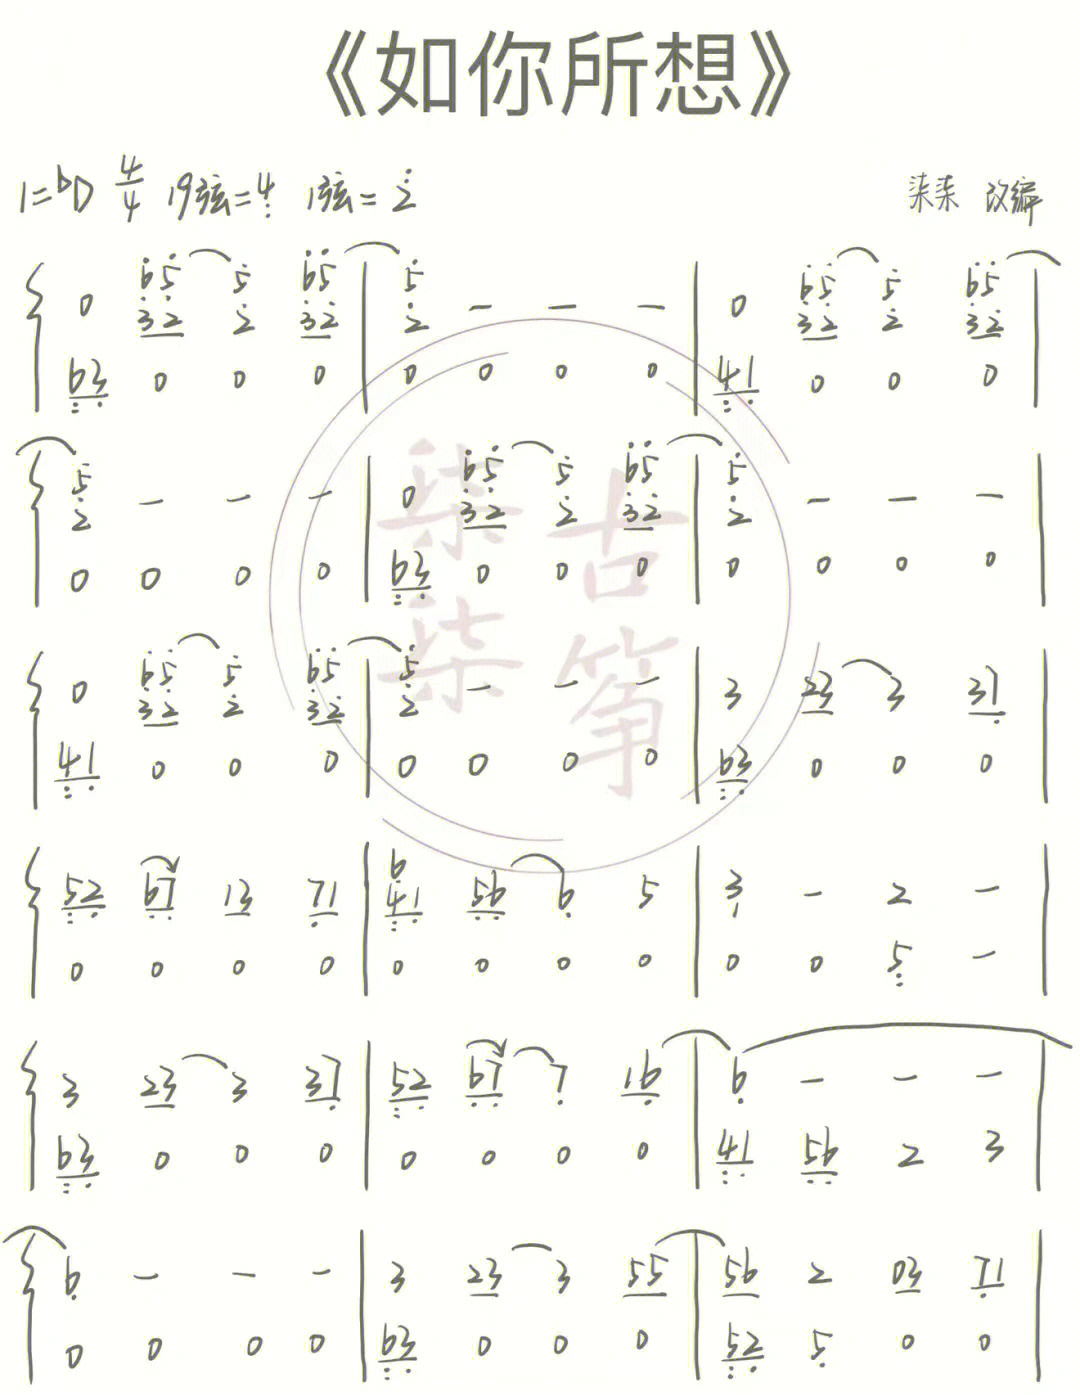 《如你所想》
1=bD 4/4 19弦=4 1弦=2
柒柒 改编
0 65 5 65 | 5 - - - | 0 65 5 65
32 2 32 | 2 | 32 2 32
63 0 0 0 | 0 0 0 0 | 41 0 0 0
5 - - - | 0 65 5 65 | 5 - - -
2 | 32 2 32 | 2
0 0 0 0 | 63 0 0 0 | 0 0 0 0
柒柒古筝
0 65 5 65 | 5 - - - | 3 23 3 37
32 2 32 | 2
41 0 0 0 | 0 0 0 0 | 63 0 0 0
52 67 13 71 | 6 41 56 6 5 | 3 - 2 -
0 0 0 0 | 0 0 0 0 | 0 0 5 -
3 23 3 37 | 52 67 7 16 | 6 - - -
63 0 0 0 | 0 0 0 0 | 41 56 2 3
6 - - - | 3 23 3 55 | 56 2 03 71
0 0 0 0 | 63 0 0 0 | 52 5 0 0